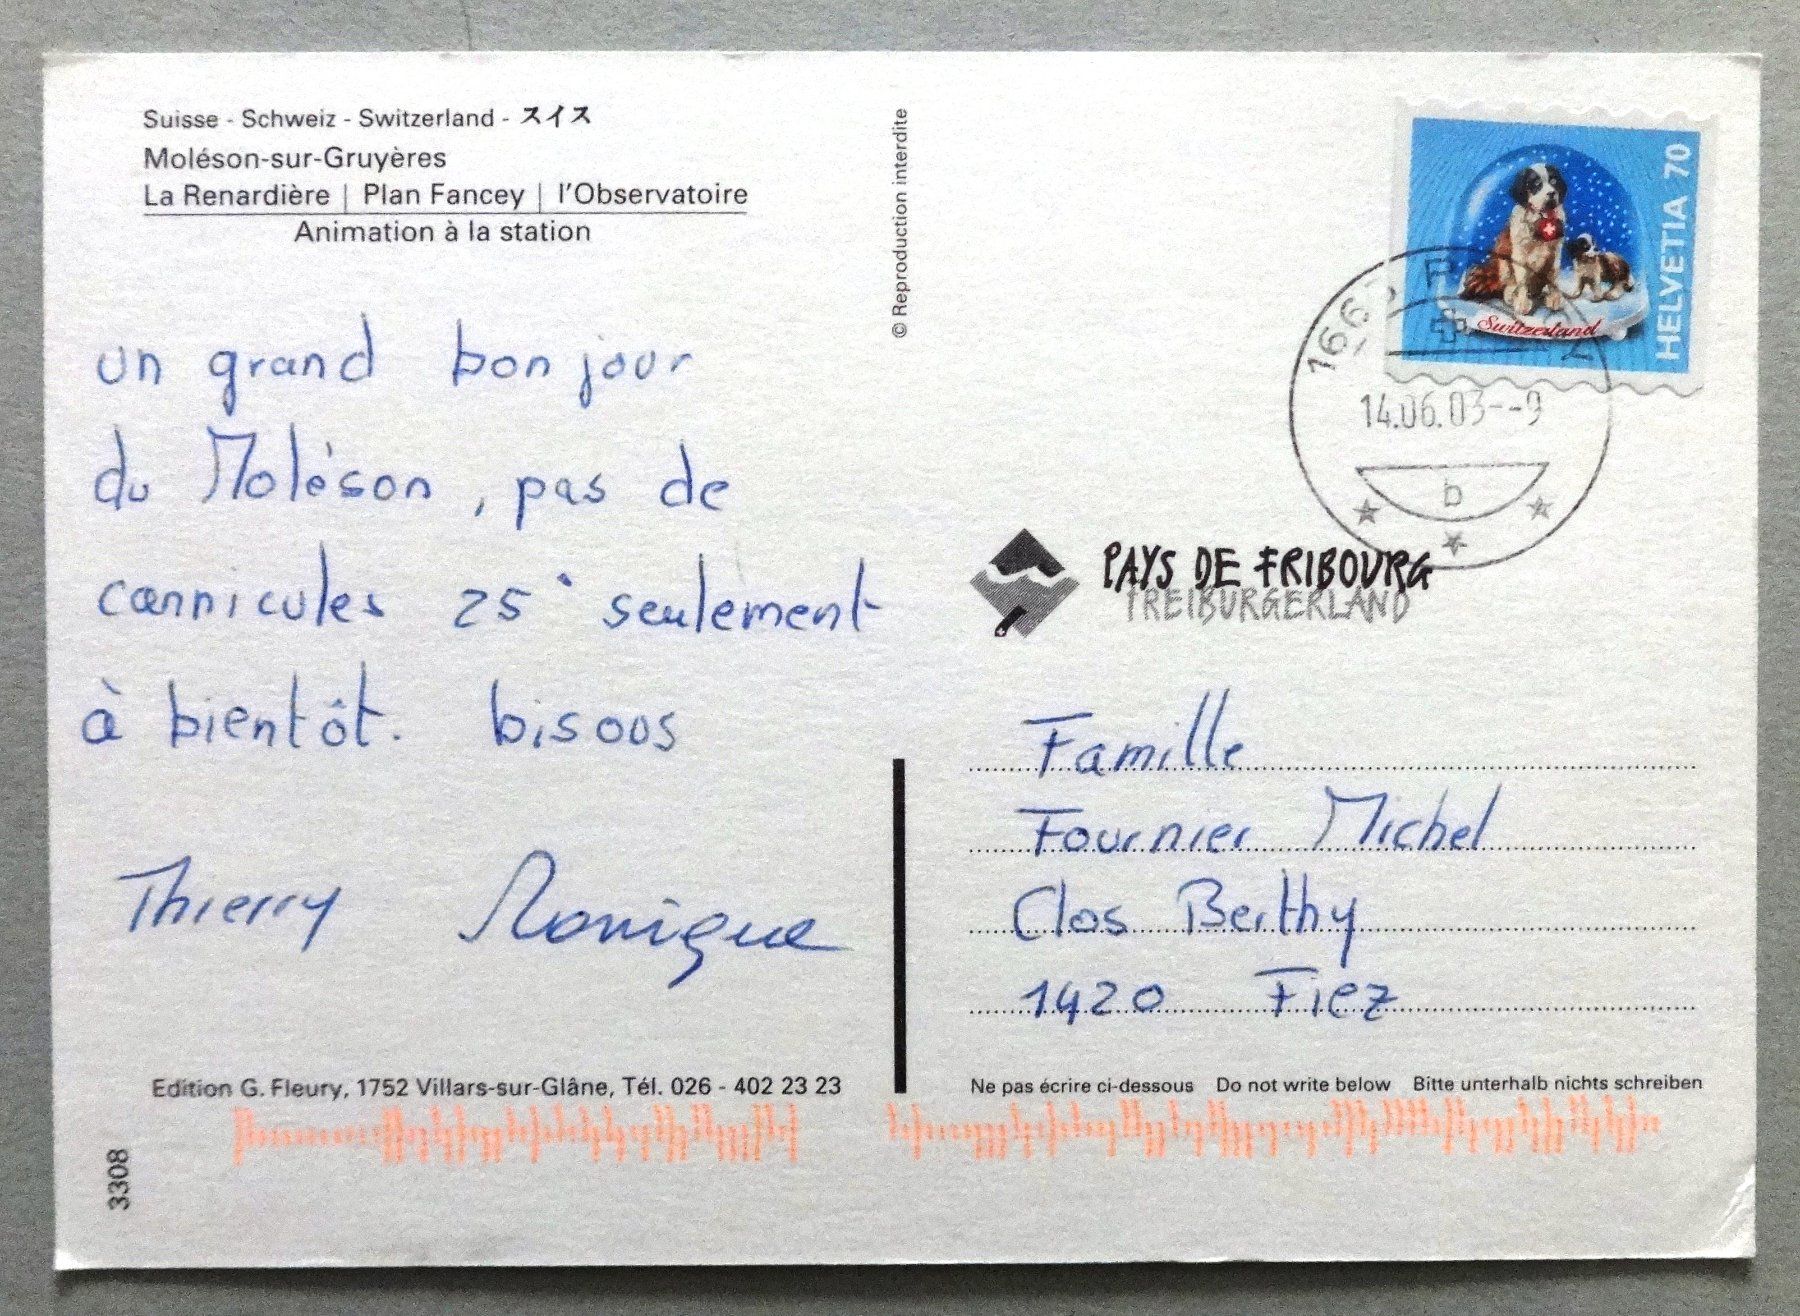 Suisse - Schweiz - Switzerland - スイス
Moléson-sur-Gruyères
La Renardière | Plan Fancey | l'Observatoire
Animation à la station
un grand bonjour
du Moléson, pas de
cannicules 25° seulement
à bientôt. bisous
Thierry Monique
Edition G. Fleury, 1752 Villars-sur-Glâne, Tél. 026 - 402 23 23
3308
© Reproduction interdite
HELVETIA 70
Switzerland
14.06.03--9
b
PAYS DE FRIBOURG
FREIBURGERLAND
Famille
Fournier Michel
Clos Berthy
1420 Fiez
Ne pas écrire ci-dessous Do not write below Bitte unterhalb nichts schreiben